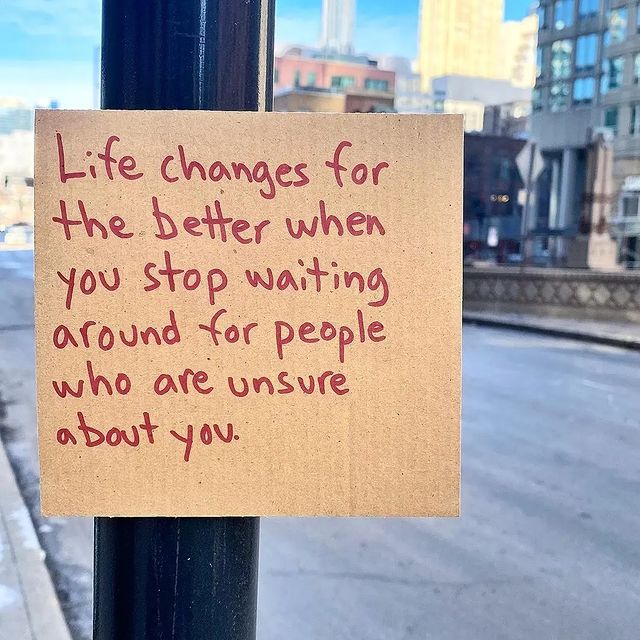 Life changes for
the better when
you stop waiting
around for people
who are unsure
about you.